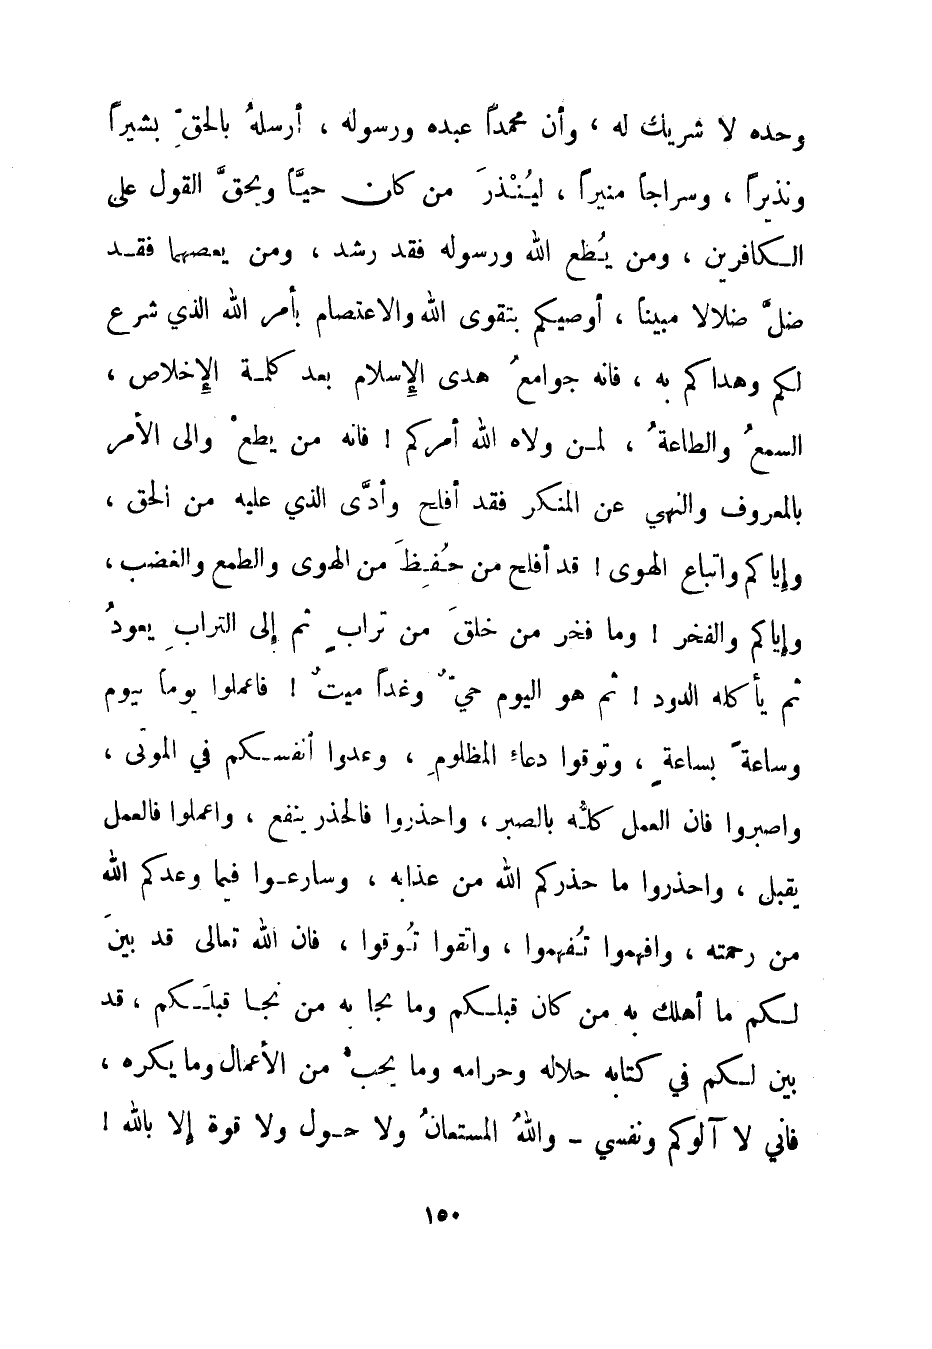 وحده لا شريك له ، وأن محمداً عبده ورسوله ، أرسلهُ بالحقِّ بشيراً
ونذيراً ، وسراجاً منيراً ، ليُنْذرَ من كان حيَّاً ويحقَّ القول على
الكافرين ، ومن يُطع الله ورسوله فقد رشد ، ومن يعصهما فقد
ضلَّ ضلالا مبيناً ، أوصيكم بتقوى الله والاعتصام بأمر الله الذي شرع
لكم وهداكم به ، فانه جوامعُ هدى الإسلام بعد كلمة الإخلاص ،
السمعُ والطاعةُ ، لمن ولاه الله أمركم ! فانه من يطعْ والى الأمر
بالمعروف والنهي عن المنكر فقد أفلح وأدَّى الذي عليه من الحق ،
وإياكم واتباع الهوى ! قد أفلح من حُفِظَ من الهوى والطمع والغضب ،
وإياكم والفخر ! وما فخر من خلقَ من ترابٍ ثم إلى الترابِ يعودُ
ثم يأكله الدود ! ثم هو اليوم حيٌّ وغداً ميتٌ ! فاعملوا يوماً بيوم
وساعةً بساعةٍ ، وتوقوا دعاء المظلومِ ، وعدوا أنفسكم في الموتى ،
واصبروا فان العمل كلُّه بالصبر ، واحذروا فالحذر ينفع ، واعملوا فالعمل
يقبل ، واحذروا ما حذركم الله من عذابه ، وسارعوا فيما وعدكم الله
من رحمته ، وافهموا تُفهموا ، واتقوا تُوقوا ، فان الله تعالى قد بينَ
لكم ما أهلك به من كان قبلكم وما نجا به من نجا قبلَكم ، قد
بين لكم في كتابه حلاله وحرامه وما يحبُّ من الأعمال وما يكره ،
فاني لا آلوكم ونفسي – واللهُ المستعانُ ولا حول ولا قوة إلا بالله !
١٥٠